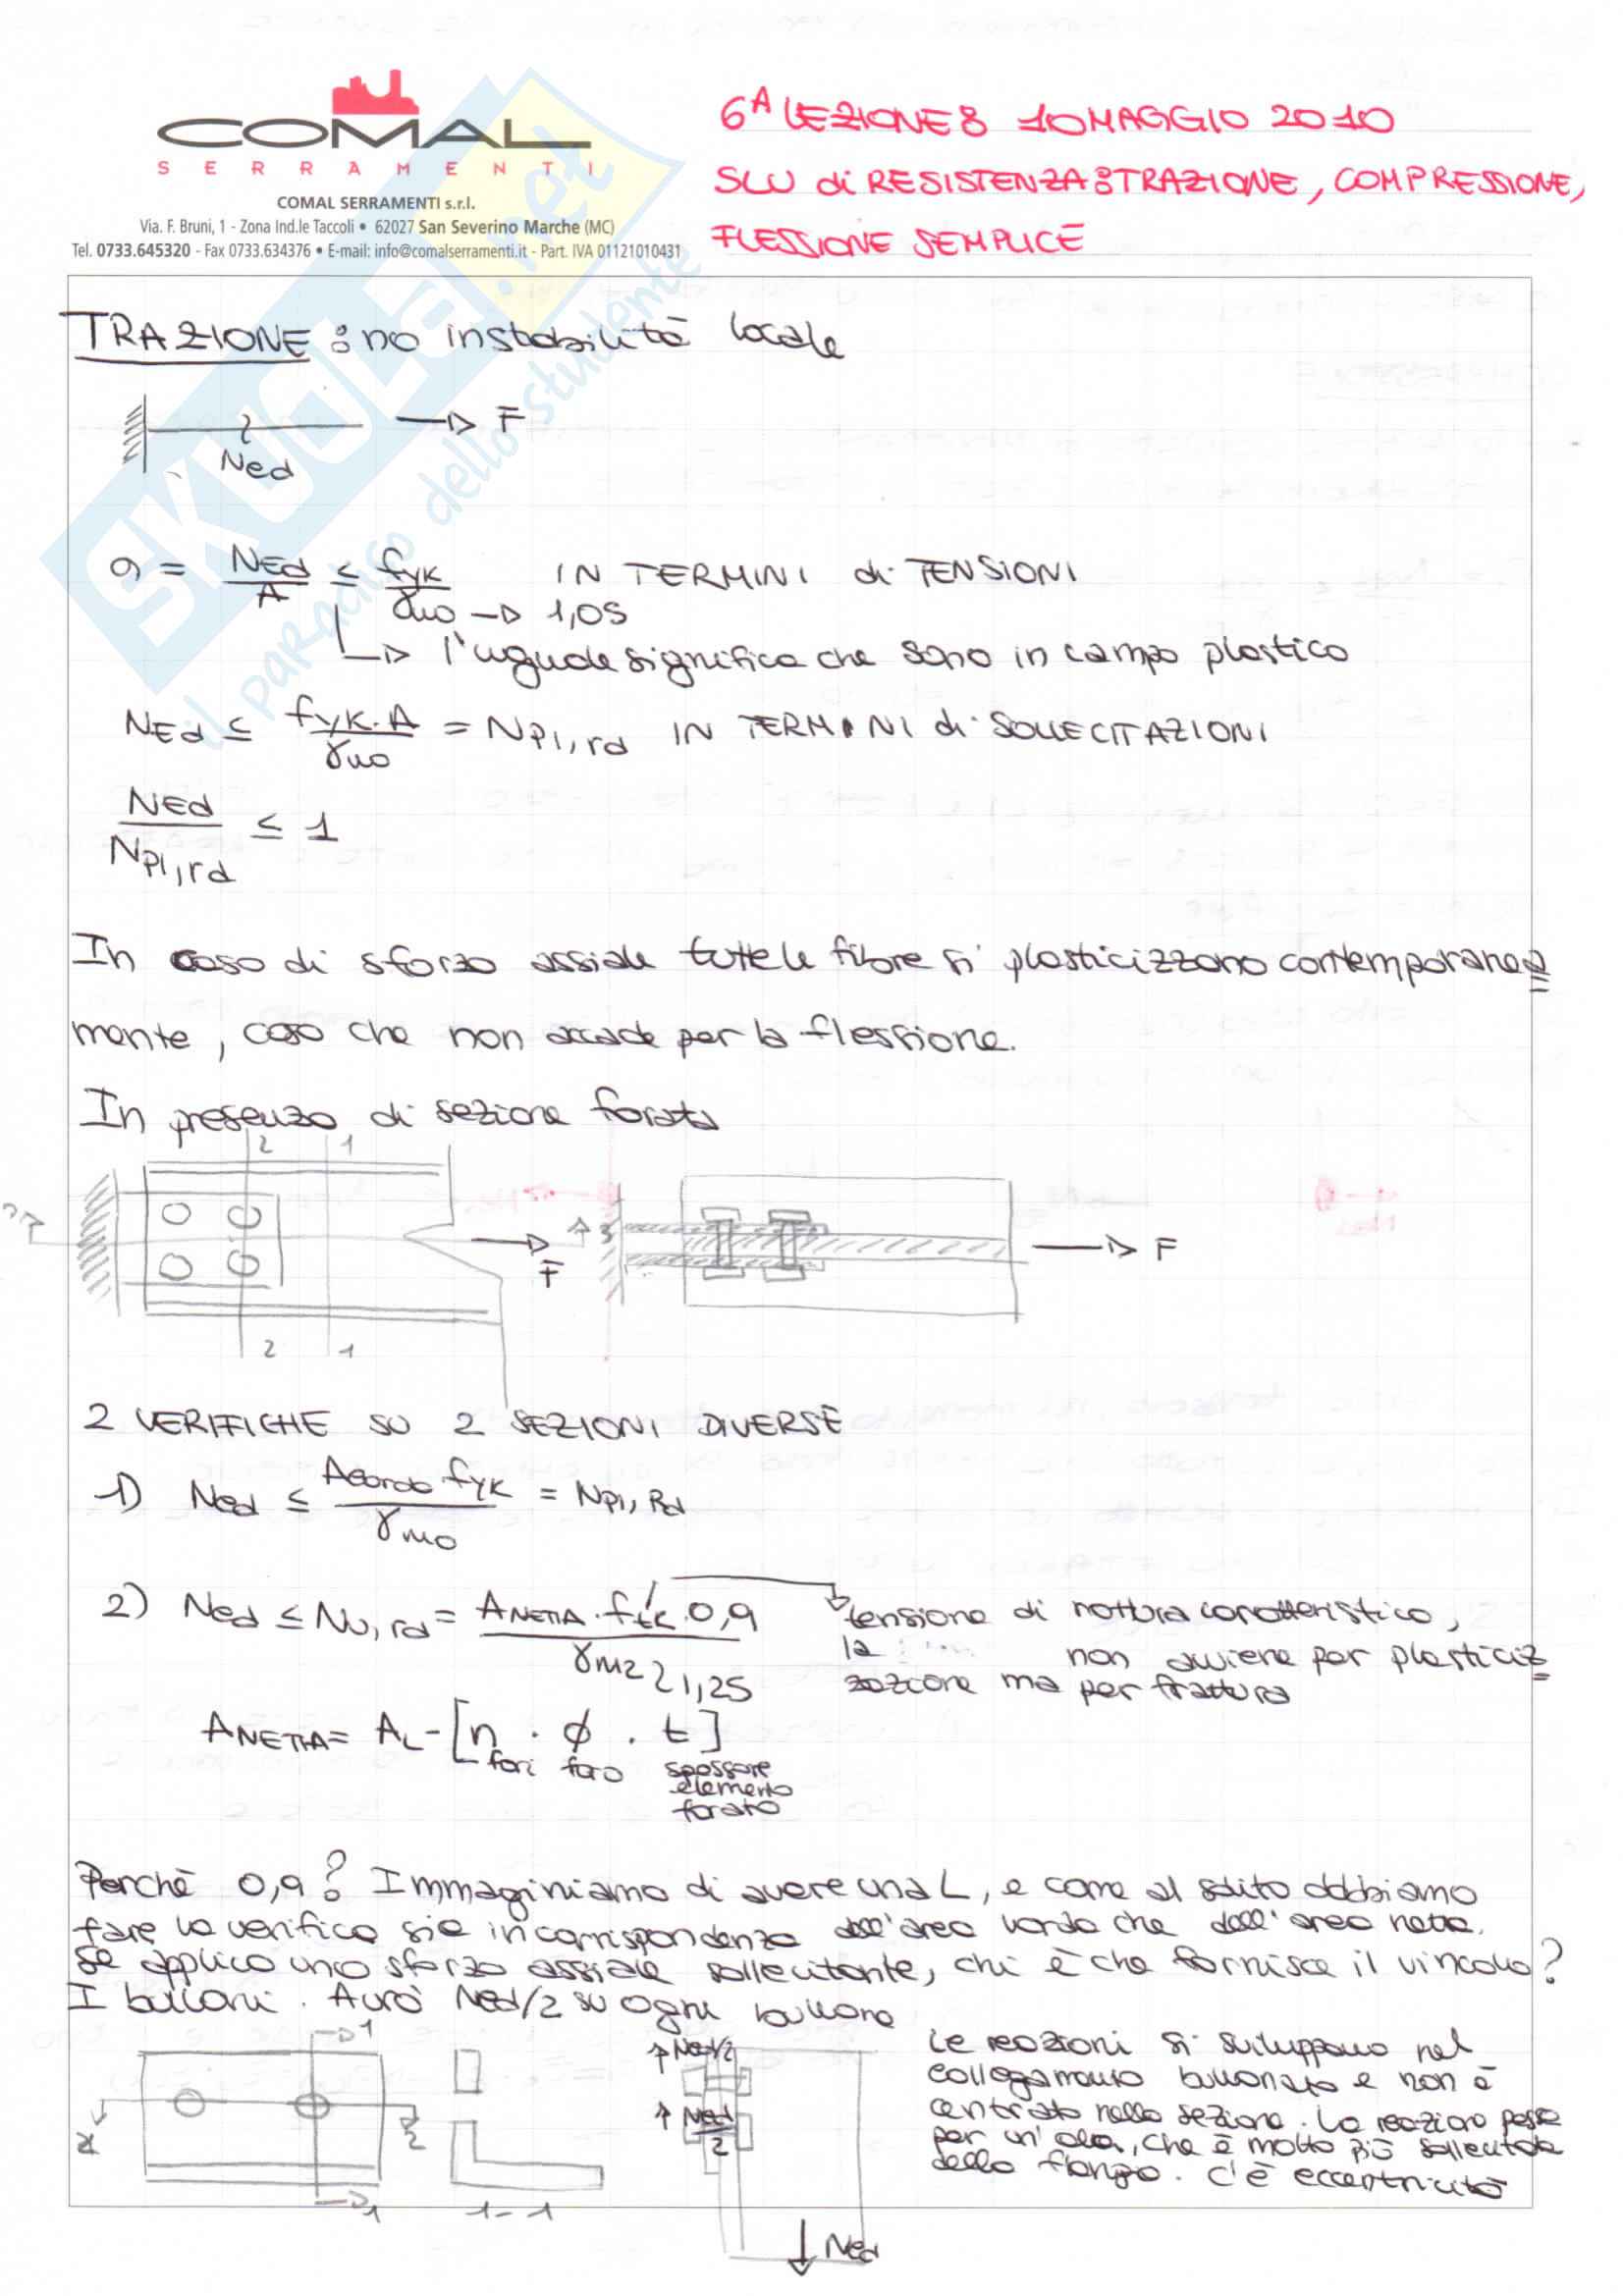 COMAL
SERRAMENTI
COMAL SERRAMENTI s.r.l.
Via. F. Bruni, 1 - Zona Ind.le Taccoli • 62027 San Severino Marche (MC)
Tel. 0733.645320 - Fax 0733.634376 • E-mail: info@comalserramenti.it - Part. IVA 01121010431
6ª LEZIONE: 10 MAGGIO 2010
SLU di RESISTENZA: TRAZIONE, COMPRESSIONE,
FLESSIONE SEMPLICE
SKUOLA.net
il paradiso dello studente
TRAZIONE: no instabilità locale
F
Ned
σ = NEd/A ≤ fyk/γM0 → 1,05 IN TERMINI di TENSIONI
↳ l'uguale significa che sono in campo plastico
NEd ≤ fyk·A/γM0 = Npl,rd IN TERMINI di SOLLECITAZIONI
NEd/Npl,rd ≤ 1
In caso di sforzo assiale tutte le fibre si plasticizzono contemporanea
mente, cosa che non accade per la flessione.
In presenza di sezione forata
2 1
F
3
F
2 1
2 VERIFICHE SU 2 SEZIONI DIVERSE
1) Ned ≤ Alorda fyk/γM0 = Npl,Rd
2) Ned ≤ Nu,rd = ANETTA·ftk·0,9/γM2 ≥ 1,25
tensione di rottura caratteristica,
la non avviene per plasticiz
zazione ma per frattura
ANETTA = AL - [n · ϕ · t]
fori foro spessore
elemento
forato
Perchè 0,9? Immaginiamo di avere una L, e come al solito dobbiamo
fare la verifica sia in corrispondenza dell'area lorda che dell'area netta.
Se applico uno sforzo assiale sollecitante, chi è che fornisce il vincolo?
I bulloni. Avrò Ned/2 su ogni bullone
1
2
2
1
1-1
Ned/2
Ned/2
Ned
Le reazioni si sviluppano nel
collegamento bullonato e non è
centrato nella sezione. La reazione passa
per un'ala, che è molto più sollecitata
della flangia. C'è eccentricità